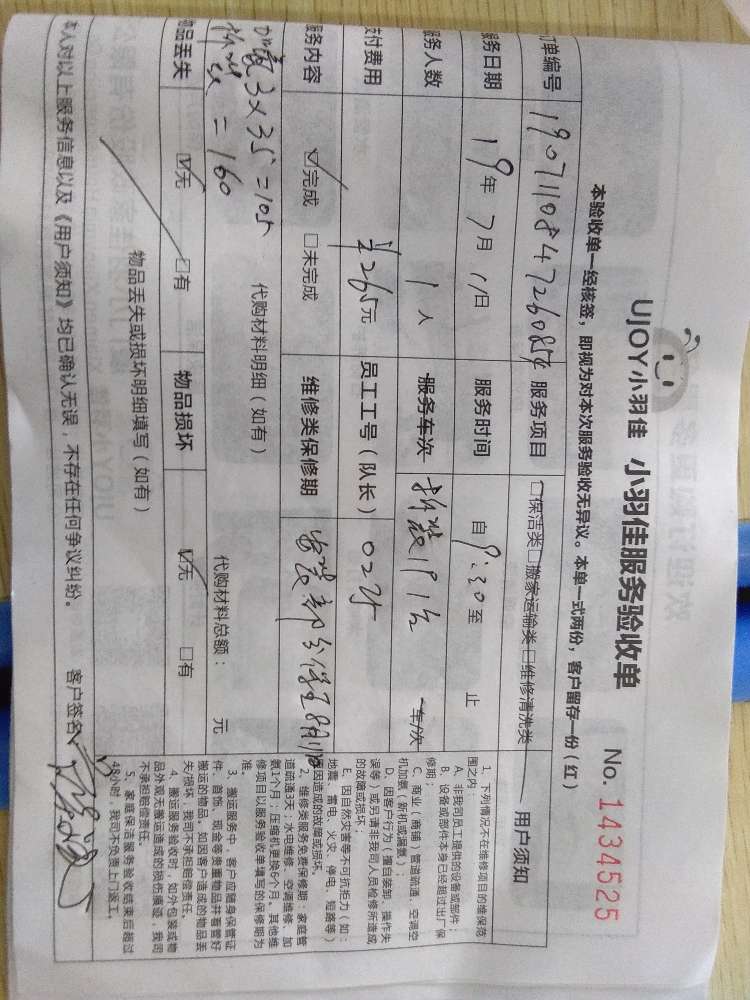 UJOY小羽佳 小羽佳服务验收单 No. 1434525
本验收单一经核签，即视为对本次服务验收无异议。本单一式两份，客户留存一份（红）
订单编号 服务项目 □保洁类□搬家运输类□维修清洗类
服务日期 19年7月11日 服务时间 自9:30至 止
服务人数 1人 服务车次 拆装1P1次 车/次
支付费用 265元 员工工号（队长） 025
服务内容 ☑完成 □未完成 维修类保修期 安装部分保至8月11日
代购材料明细（如有） 代购材料总额： 元
加氨3×35=105
=160
物品丢失 ☑无 □有 物品损坏 ☑无 □有
物品丢失或损坏明细填写（如有）
本人对以上服务信息以及《用户须知》均已确认无误，不存在任何争议纠纷。 客户签名
用户须知
1、下列情况不在维修项目的维保范
围之内：
A、非我司员工提供的设备或部件；
B、设备或部件本身已经超过出厂保
修期；
C、商业（商铺）管道疏通、空调空
机加氨（新机或漏氨）；
D、因客户行为（擅自装卸、操作失
误等）或另请非我司人员检修所造成
的故障或损坏；
E、因自然灾害等不可抗拒力（如：
地震、雷电、火灾、停电、短路等）
原因造成的故障或损坏。
2、维修类服务免费保修期：家庭管
道疏通3天；水电维修、空调维修、加
氨1个月；压缩机更换6个月。其他维
修项目以服务验收单填写的保修期为
准。
3、搬运服务中，客户应随身保管证
件、首饰、现金等贵重物品并看管好
搬运的物品。如因客户造成的物品丢
失/损坏，我司不承担赔偿责任。
4、搬运服务验收时，如外包装或物
品外观无搬运造成的损伤痕迹，我司
不承担赔偿责任。
5、家庭保洁服务验收结束后超过
48小时，我司不负责上门返工。